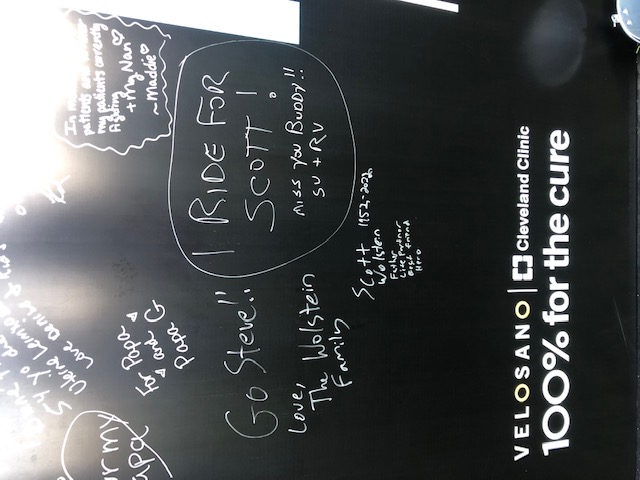 patients and
my patients currently
Fighting
+ My Nan
~Maddie
I RIDE FOR
SCOTT!
MISS YOU BUDDY!!
SU + RV
For Papa A
and G
Papa
my
apa
GO Steve!!
Love,
The Wolstein
Family
Scott 1952-2022
Wolstein
Father
Life Partner
Best Friend
Hero
VELOSANO | Cleveland Clinic
100% for the cure